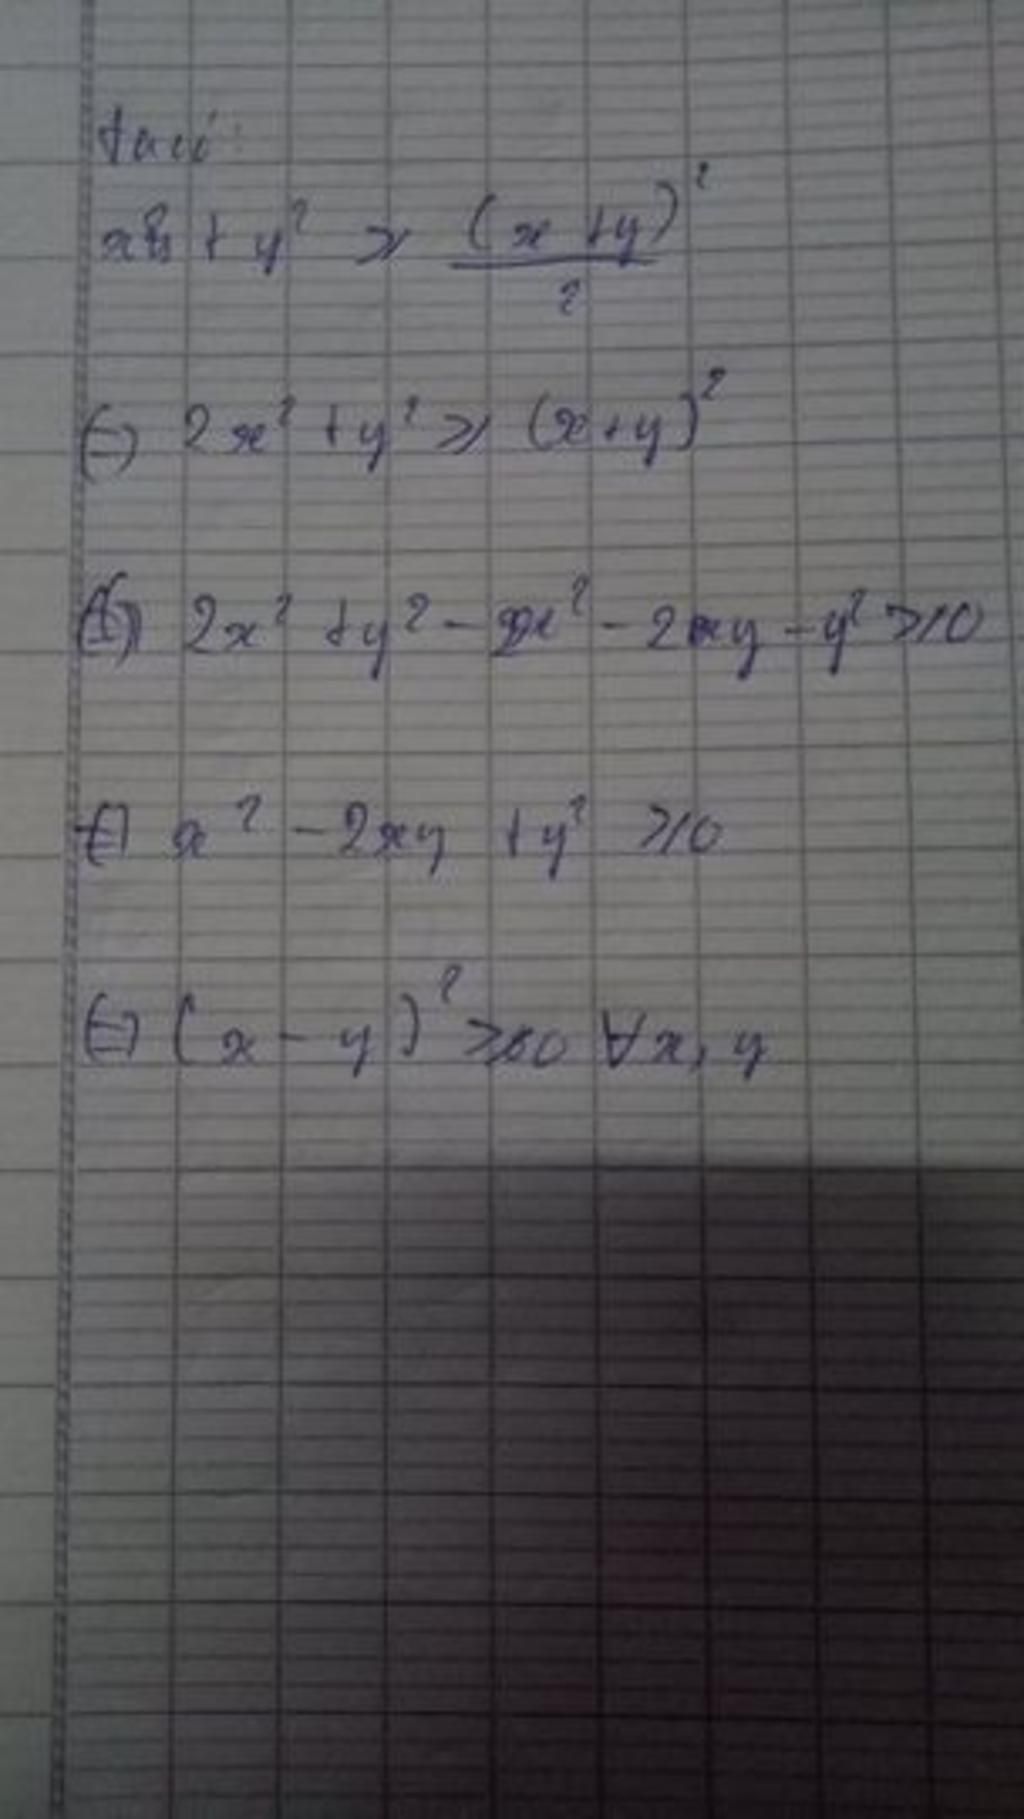 x² + y² ≥ (x + y)² / 2
⇔ 2x² + y² ≥ (x + y)²
⇔ 2x² + y² - x² - 2xy - y² ≥ 0
⇔ x² - 2xy + y² ≥ 0
⇔ (x - y)² ≥ 0 ∀x, y